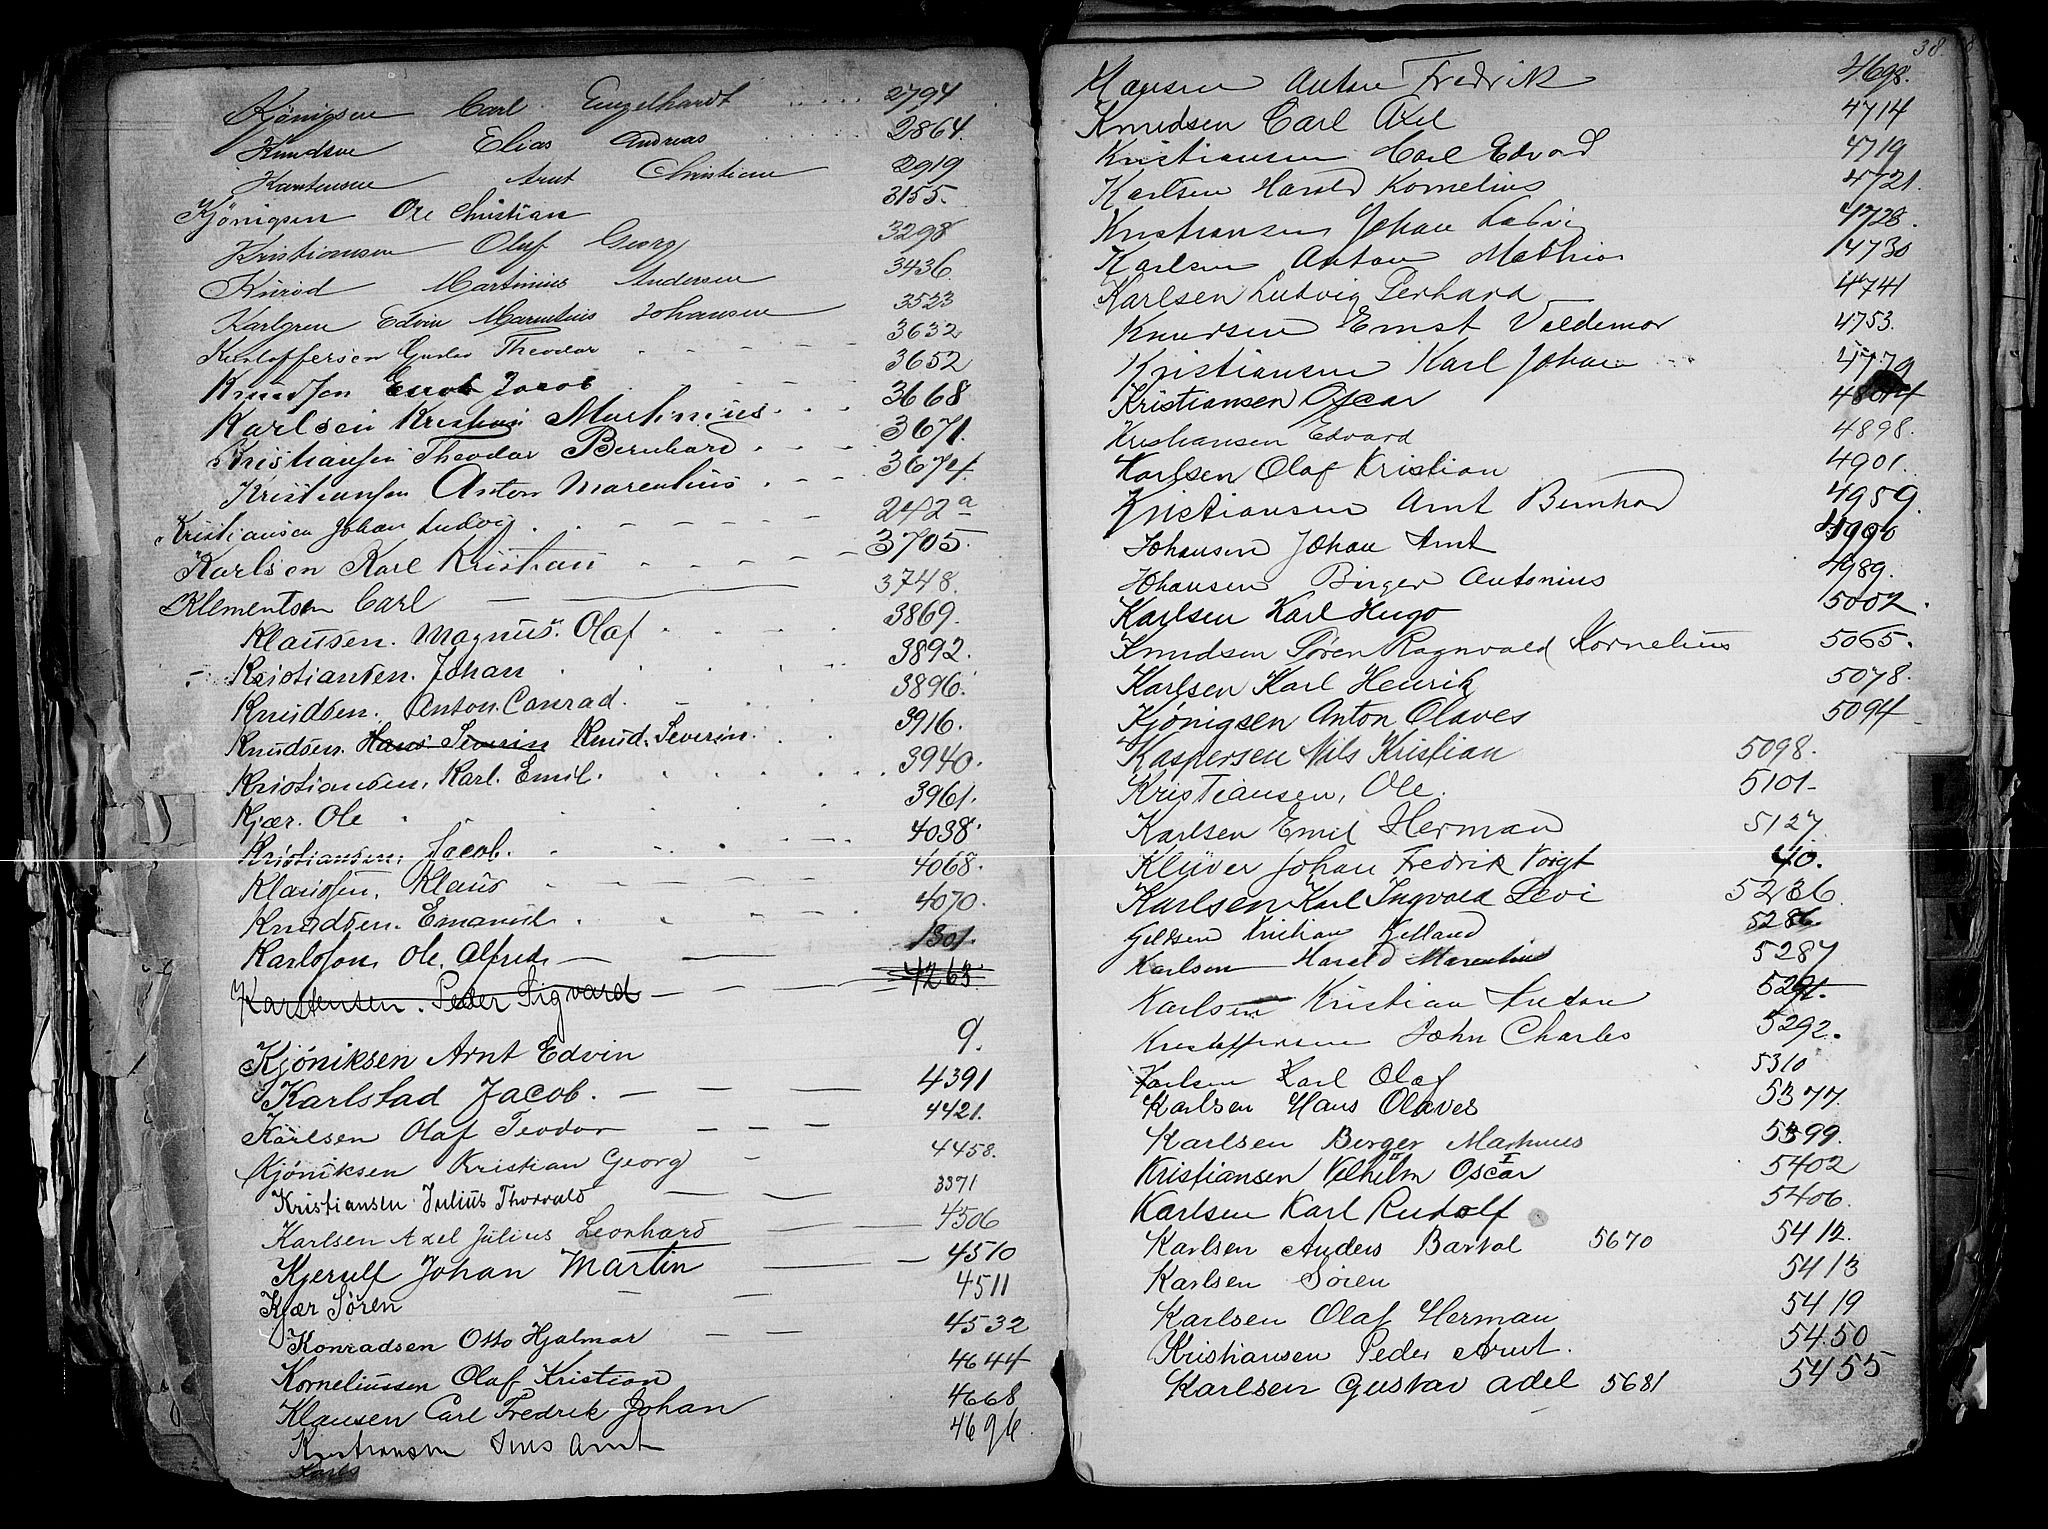 Kjönigsen Carl Engelhardt 2794
Knudsen Elias Andreas 2864.
Karstensen Arnt Christian 2919
Kjönigsen Ole Christian 3155.
Kristiansen Oluf Georg 3298
Knud Martinius Andersen 3436
Karlgren Edvin Marentius Johansen 3523
Kristoffersen Gustav Theodor 3632
Knudsen Jacob 3652
Karlsen Kristian Martinius 3668
Kristiansen Theodor Bernhard 3671.
Kristiansen Anton Marentius 3674.
Kristiansen Johan Ludvig 242 a
Karlsen Karl Kristian 3705.
Klementsen Carl 3748.
Klausen. Magnus. Olaf 3869.
Kristiansen. Johan 3892.
Knudsen. Anton. Conrad. 3896.
Knudsen. Hans Severin Knud. Severin. 3916.
Kristiansen. Karl. Emil. 3940.
Kjær. Ole 3961.
Kristiansen. Jacob. 4038.
Klausen. Klaus 4068.
Knudsen. Emanuel 4070.
Karlsson. Ole. Alfred. 1301.
Karstensen. Peder Sigvard 4263.
Kjöniksen Arnt Edvin 9.
Karlstad Jacob. 4391
Karlsen Olaf Teodor 4421.
Kjöniksen Kristian Georg 4458.
Kristiansen Julius Thorvald 3371
Karlsen Axel Julius Leonhard 4506
Kjerulf Johan Martin 4510
Kjær Sören 4511
Konradsen Otto Hjalmar 4532
Korneliussen Olaf Kristian 4644
Klausen Carl Fredrik Johan 4668
Kristiansen Jens Arnt 4696
Karls
38
Hansen Anton Fredrik 4698.
Knudsen Carl Axel 4714
Kristiansen Karl Edvard 4719
Karlsen Harald Kornelius 4721.
Kristiansen Johan Ludvig 4728.
Karlsen Anton Mathias 4730
Karlsen Ludvig Gerhard 4741
Knudsen Ernst Valdemar 4753.
Kristiansen Karl Johan 4779
Kristiansen Oscar
Kristiansen Edvard 4898.
Karlsen Olaf Kristian 4901.
Kristiansen Arnt Bernhard 4959.
Johansen Johan Arnt
Johansen Birger Antonius 4989.
Karlsen Karl Hugo 5002.
Knudsen Sören Ragnvald Kornelius 5065.
Karlsen Karl Henrik 5078.
Kjönigsen Anton Olaves 5094
Kaspersen Nils Kristian 5098.
Kristiansen, Ole. 5101-
Karlsen Emil Herman 5127.
Klüver Johan Fredrik Voigt 40.
Karlsen Karl Ingvald Levi 5236.
Kristian 5286
Karlsen Harald Marentius 5287
Karlsen Kristian Anton 5291.
Kristoffersen John Charles 5292.
Karlsen Karl Olaf 5310
Karlsen Hans Olaves 5377.
Karlsen Berger Martinius 5399.
Kristiansen Vilhelm II Oscar I 5402
Karlsen Karl Rudolf 5406.
Karlsen Anders Bartol 5670 5412.
Karlsen Sören 5413
Karlsen Olaf Herman 5419
Kristiansen Peder Arnt. 5450
Karlsen Gustav Adel 5681 5455